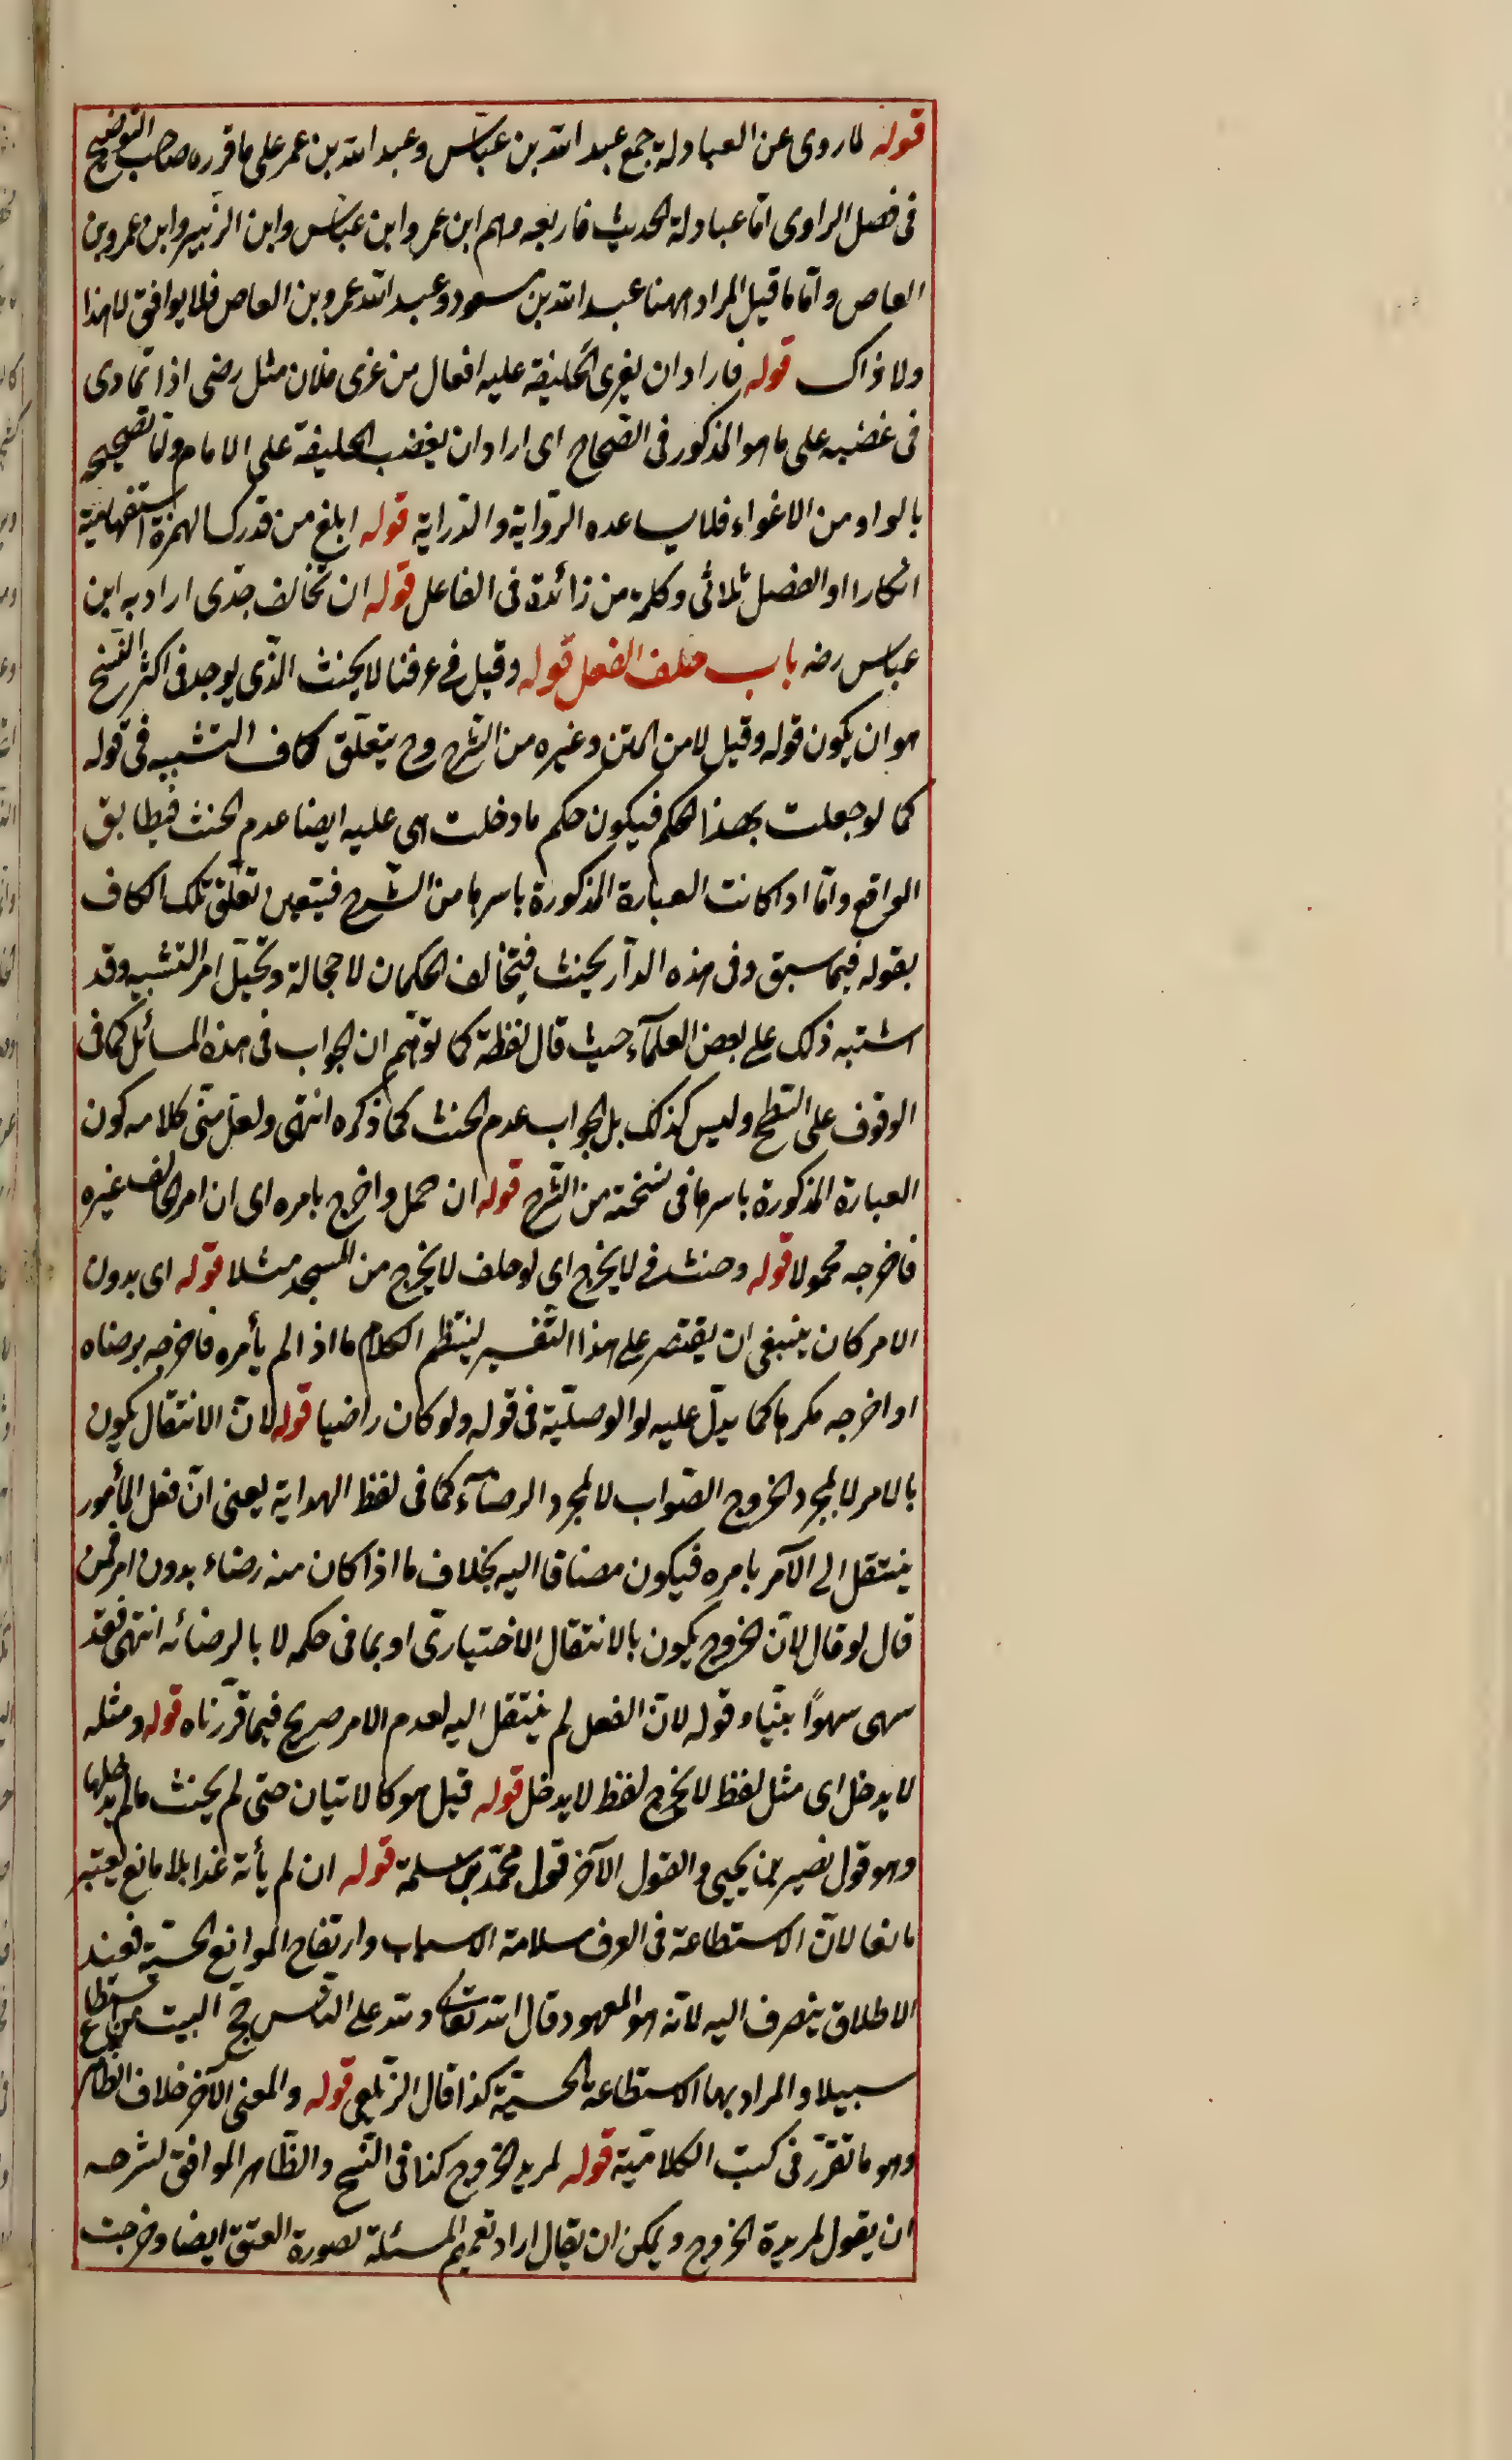 قوله لما روى عن العبادلة جمع عبد الله بن عباس وعبد الله بن عمر على ما قرره صاحب التوضيح
فى فصل الراوى امّا عبادلة الحديث فاربعه وهم ابن عمر وابن عباس وابن الزبير وابن عمرو بن
العاص وامّا ما قيل المراد ههنا عبد الله بن مسعود وعبد الله عمرو بن العاص فلا يوافق لا هذا
ولا ذاك قوله فاراد ان يغرى الخليفة عليه افعال من غرى فلان مثل رضى اذا تمادى
فى غضبه على ما هو المذكور فى الصّحاح اى اراد ان يغضب الخليفة على الامام وامّا تصحيحه
بالواو من الاغواء فلا يساعده الرّواية والدّراية قوله ابلغ من قدرك الهمزة استفهامية
انكارا او الفضل ثلاثى وكلمة من زائدة فى الفاعل قوله ان تخالف جدّى اراد به ابن
عباس رضه باب حلف الفعل قوله وقيل فى عرفنا لا يحنث الذّى يوجد فى اكثر النّسخ
هو ان يكون قوله وقيل لا من المتن وغيره من الشّرح وح يتعلّق كاف التشبيه فى قوله
كما لو جعلت بهذا الحكم فيكون حكم ما دخلت هى عليه ايضا عدم الحنث فيطابق
الواقع وامّا اذا كانت العبارة المذكورة باسرها من الشّرح فيتعين تعلّق تلك الكاف
بقوله فيما سبق وفى هذه الدّار يحنث فيتخالف الحكمان لا محالة ويختلّ امر التشبيه وقد
اشتبه ذلك على بعض العلمآء حيث قال لفظة كما توهّم ان الجواب فى هذه المسائل كما فى
الوقوف على السّطح وليس كذلك بل الجواب عدم الحنث كما ذكره انتهى ولعلّ مبنى كلامه كون
العبارة المذكورة باسرها فى نسخته من الشّرح قوله ان حمل واخرج بامره اى ان امر الحالف غيره
فاخرجه محمولا قوله وحنث فى لا يخرج اى لو حلف لا يخرج من المسجد مثلا قوله اى بدون
الامر كان ينبغى ان يقتصر على هذا التّفسير لينتظم الكلام ما اذا لم يأمره فاخرجه برضاه
او اخرجه مكرها كما يدلّ عليه لو الوصليّة فى قوله ولو كان راضيا قوله لانّ الانتقال يكون
بالامر لا لمجرد الخروج الصّواب لا لمجرد الرضآء كما فى لفظ الهداية يعنى انّ فعل المأمور
ينتقل الى الآمر بامره فيكون مضافا اليه بخلاف ما اذا كان منه رضاء بدون امر فمن
قال لو قال لانّ الخروج يكون بالانتقال الاختيارىّ او بما فى حكمه لا بالرضائه انتهى فقد
سهى سهوًا بيّنا وقوله لانّ الفعل لم ينتقل اليه لعدم الامر صريح فيما قرّرناه قوله ومثله
لا يدخل اى مثل لفظ لا يخرج لفظ لا يدخل قوله قيل هو كالاتيان حتى لم يحنث ما لم يدخلها
وهو قول نصير بن يحيى والقول الآخر قول محمّد بن سلمة قوله ان لم يأته غدا بلا مانع يعتبر
مانعا لانّ الاستطاعة فى العرف سلامة الاسباب وارتفاع الموانع الحسّية فعند
الاطلاق ينصرف اليه لانّه هو المعهود قال الله تعالى ولله على النّاس حجّ البيت من استطاع
سبيلا والمراد بها الاستطاعة الحسّيّة كذا قال الزّيلعى قوله والمعنى الآخر خلاف الظاهر
وهو ما تقرّر فى كتب الكلاميّة قوله لمريد الخروج كذا فى النّسخ والظّاهر الموافق لشرحه
ان يقول لمريدة الخروج ويمكن ان يقال اراد تعميم المسئلة لصورة العتق ايضا وخرجت